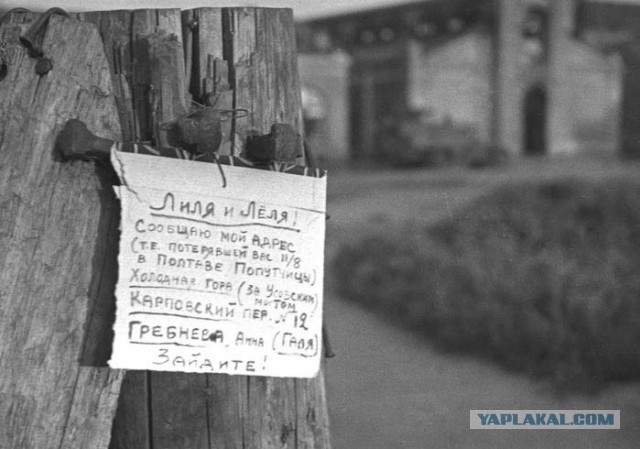 Лиля и Лёля!
Сообщаю мой адрес
(т.е. потерявшей вас 11/8
в Полтаве попутчицы)
Холодная гора (за Усовским
мостом)
Карповский пер. № 12
Гребнева, Анна (Галя)
Зайдите!
YAPLAKAL.COM